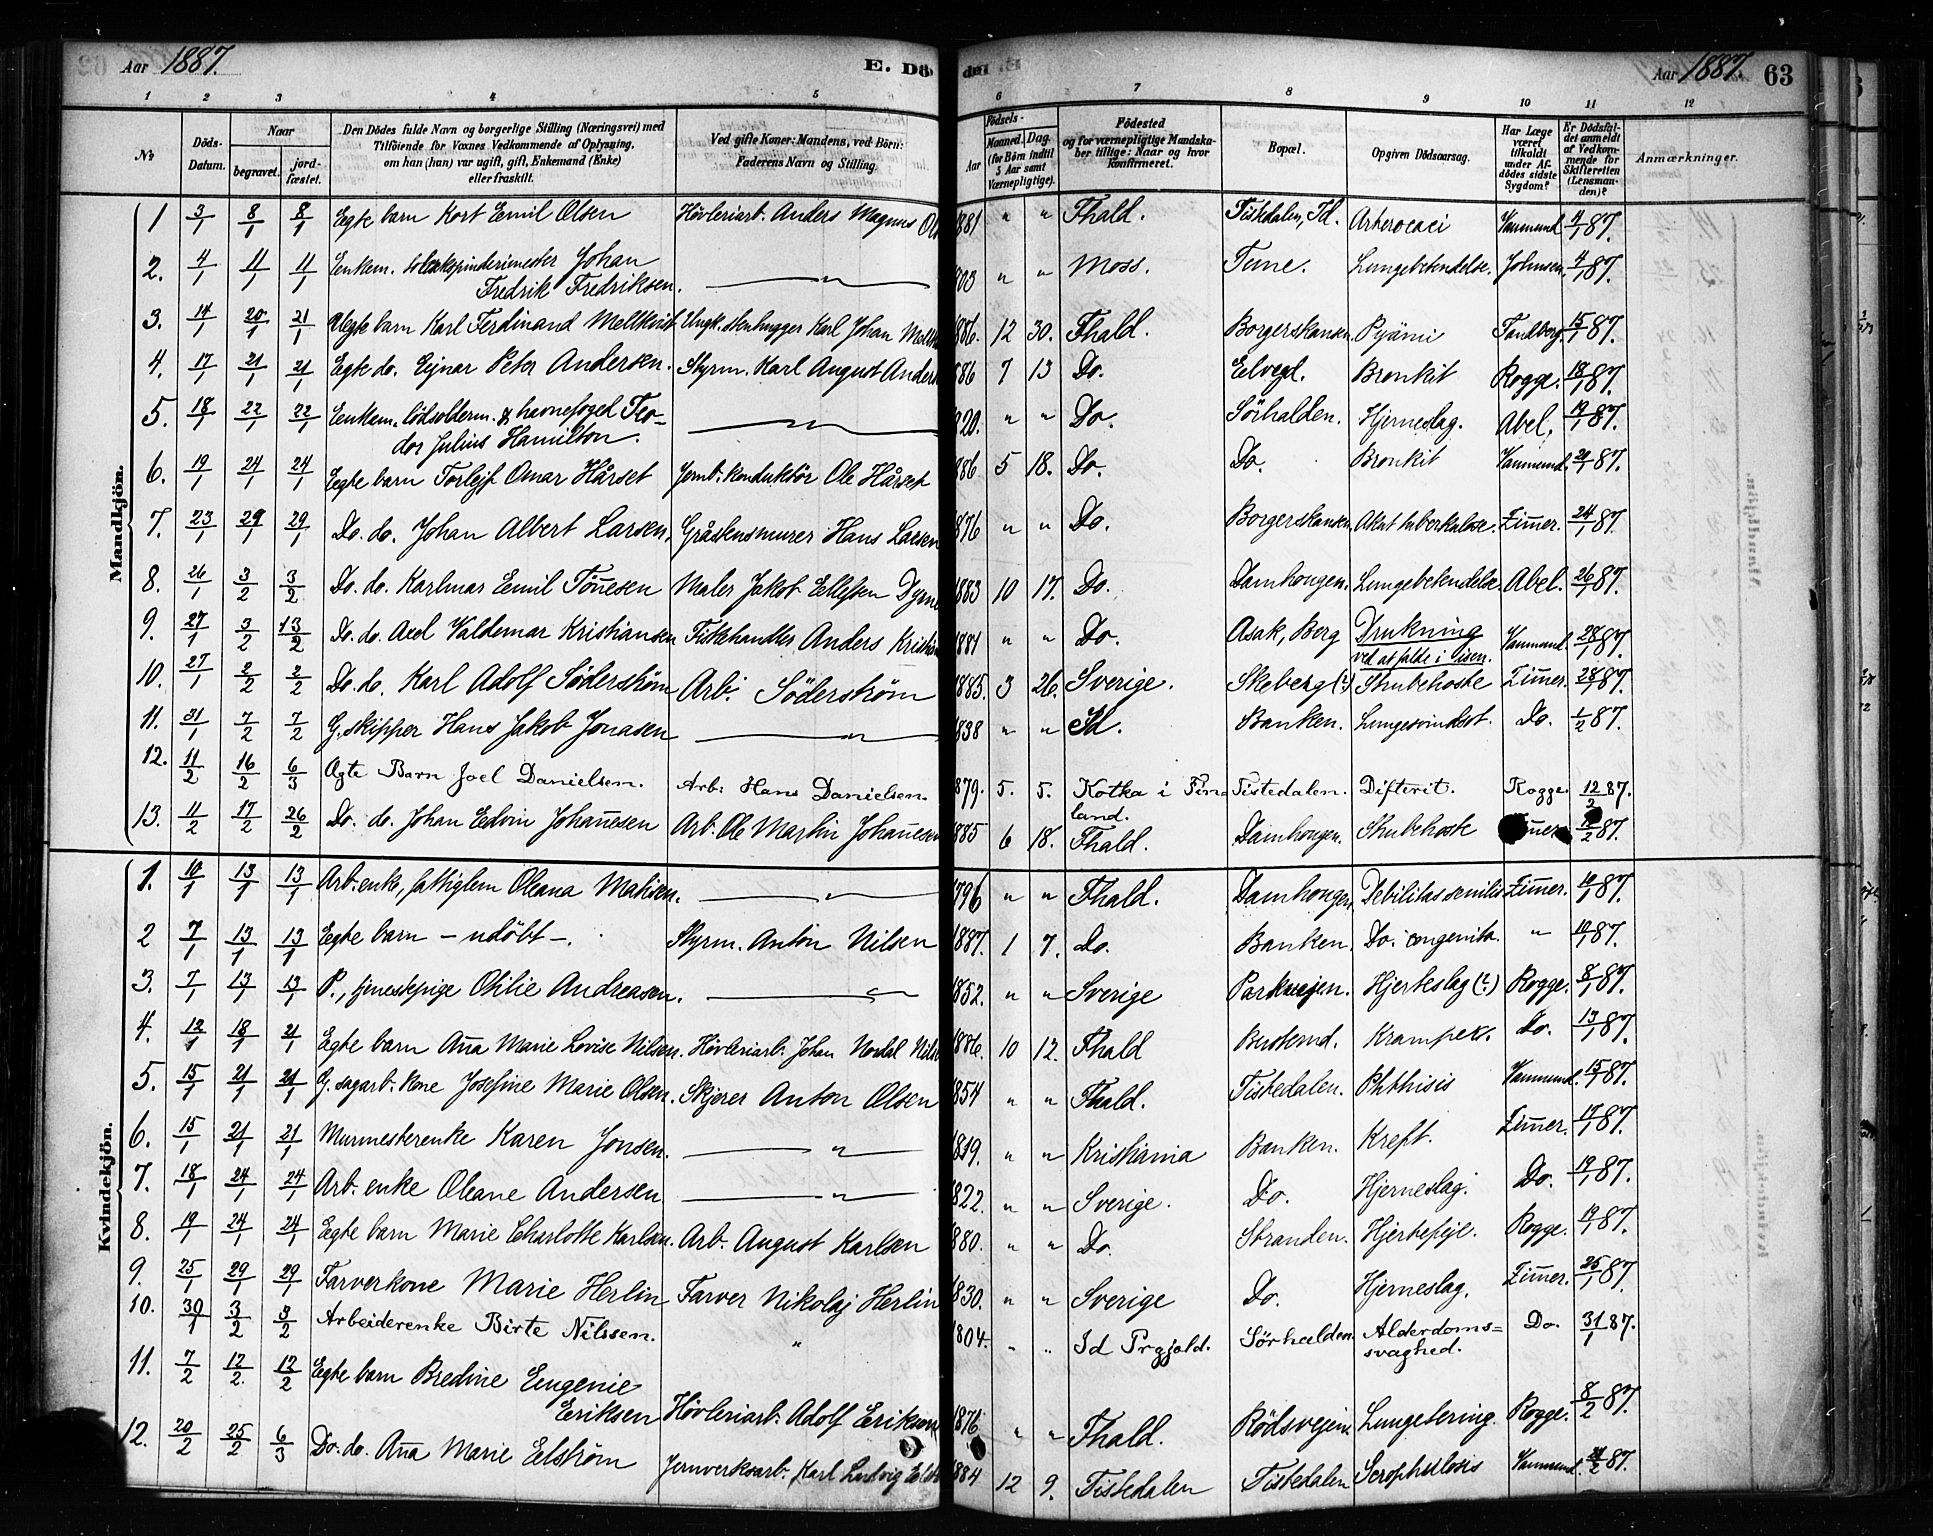 Aar 1887. E. Dö- den Aar 1887. 63
1 2 3 4 5 6 7 8 9 10 11 12
№ Döds-Datum. Naar begravet. jord-fæstet. Den Dödes fulde Navn og borgerlige Stilling (Næringsvei) med Tilföiende for Voxnes Vedkommende af Oplysning, om han (hun) var ugift, gift, Enkemand (Enke) eller fraskilt. Ved gifte Koner: Mandens, ved Börn: Faderens Navn og Stilling. Födsels- Aar Maaned. Dag. (for Börn indtil 5 Aar samt Værnepligtige). Födested og for værnepligtige Mandska-ber tillige: Naar og hvor konfirmeret. Bopæl. Opgiven Dödsaarsag. Har Læge været tilkaldt under Af-dödes sidste Sygdom? Er Dödsfal-det anmeldt af Vedkom-mende for Skifteretten (Lensman-den)? Anmærkninger.
Mandkjön.
1 3/1 8/1 8/1 Egte barn Kort Emil Olsen Hövleriarb. Anders Magnus Ol 1881 " " Fhald. Tistedalen, Id. 4/1 87.
2. 4/1 11/1 11/1 Enkem. Johan Fredrik Fredriksen. " 803 " " Moss. Tune. Lungebetendelse. Johnsen. 4/1 87.
3. 14/1 20/1 21/1 Uegte barn Karl Ferdinand Ungk. stenhugger Karl Johan 1886. 12 30. Fhald. Borgerskansen. Pyämi 15/1 87.
4. 17/1 21/1 21/1 Egte do. Ejnar Peter Andersen. Styrm. Karl August Anders 886 7 13 Do. Elvegd. Bronkit Rogge. 18/1 87.
5. 18/1 22/1 22/1 Enkem. & havnefoged Teo-dor Julius Hamilton. " 820. " " Do. Sörhalden. Hjerneslag. Abel. 19/1 87.
6. 19/1 24/1 24/1 Egte barn Torlejf Omar Hårset Jernb. konduktör Ole Hårset 886 5 18. Do. Do. Bronkit 87.
7. 23/1 29/1 29/1 Do. do. Johan Albert Larsen. Gråstensmurer Hans Larsen 1876 " " Do. Borgerskansen. Akut tuberkulose. Zimer. 24/1 87.
8. 26/1 3/2 3/2 Do. do. Karlmar Emil Tönesen Maler Jakob Ellefsen 1883 10 17. Do. Damhougen. Lungebetendelse. Abel. 26/1 87.
9. 27/1 3/2 13/2 Do. do. Axel Valdemar Kristiansen Fiskehandler Anders Kristian 1881 " " Do. Asak, Berg Drukning ved at falde i isen. 28/1 87.
10. 27/1 2/2 2/2 Do. do. Karl Adolf Söderström Arb. Söderström 1885. 3 26. Sverige. Skeberg (?) Strubehoste Zimer. 28/1 87.
11. 31/1 7/2 7/2 G. skipper Hans Jakob Jonasen " 1838 " " Id. Banken. Lungesvindsot. Do. 1/2 87.
12. 11/2 16/2 6/3 Ægte Barn Joel Danielsen. Arb. Hans Danielsen. 879. 5. 5. Kotka i Fin-land. Tistedalen. Difterit. Rogge 12/2 87.
13. 11/2 17/2 26/2 Do. do. Johan Edvin Johanesen Arb. Ole Martin Johanesen 1885 6 18. Fhald. Damhougen. Strubehoste 87.
Kvindekjön.
1. 10/1 13/1 13/1 Arb. enke, fattiglem Oleana Matisen. " 1796 " " Fhald. Damhougen. Debilitas senilis Zimer. 10/1 87.
2 7/1 13/1 13/1 Egte barn – udöbt –. Styrm. Anton Nilsen 1887. 1 7. Do. Banken. Do. congenita. " 10/1 87.
3. 7/1 13/1 13/1 P., tjenestepige Otilie Andreasen. " 1852. " " Sverige Parkvejen. Hjerteslag (?) Rogge. 8/1 87.
4. 12/1 18/1 21/1 Egte barn Ana Marie Lovise Nilsen. Hövleriarb. Johan Nordal Nils 1886. 10 12. Fhald Busterud. Kramper. Do. 13/1 87.
5. 15/1 21/1 21/1 G. sagarb. kone Josefine Marie Olsen. Skjerer Anton Olsen 1854 " " Fhald. Tistedalen. Phthisis 15/1 87.
6. 15/1 21/1 21/1 Murmesterenke Karen Jonsen. " 1819. " " Kristiania Banken. Kreft. Zimer. 17/1 87.
7. 18/1 24/1 24/1 Arb. enke Oleane Andersen " 1822. " " Sverige. Do. Hjerneslag. Do. 19/1 87.
8. 19/1 24/1 24/1 Egte barn Marie Charlotte Karlsen. Arb. August Karlsen 880. " " Do. Stranden. Hjertefejl. Rogge. 19/1 87.
9. 25/1 29/1 29/1 Farverkone Marie Herlin Farver Nikolaj Herlin 1830. " " Sverige Do. Hjerneslag. Zimer. 25/1 87.
10. 30/1 3/2 3/2 Arbeiderenke Birte Nilssen. " 1804. " " Id Prgjæld. Sörhalden Alderdoms-svaghed. Do. 31/1 87.
11. 7/2 12/2 12/2 Egte barn Bredine Eugenie Eriksen Hövleriarb. Adolf Eriksen 1876 " " Fhald. Rödsvejen Lungetering. Rogge. 8/2 87.
12. 20/2 25/2 6/3 Do. do. Ana Marie Elström Jernverksarb. Karl Ludvig Elst 1884 12 9. Tistedalen Tistedalen Scrophulosis 87.